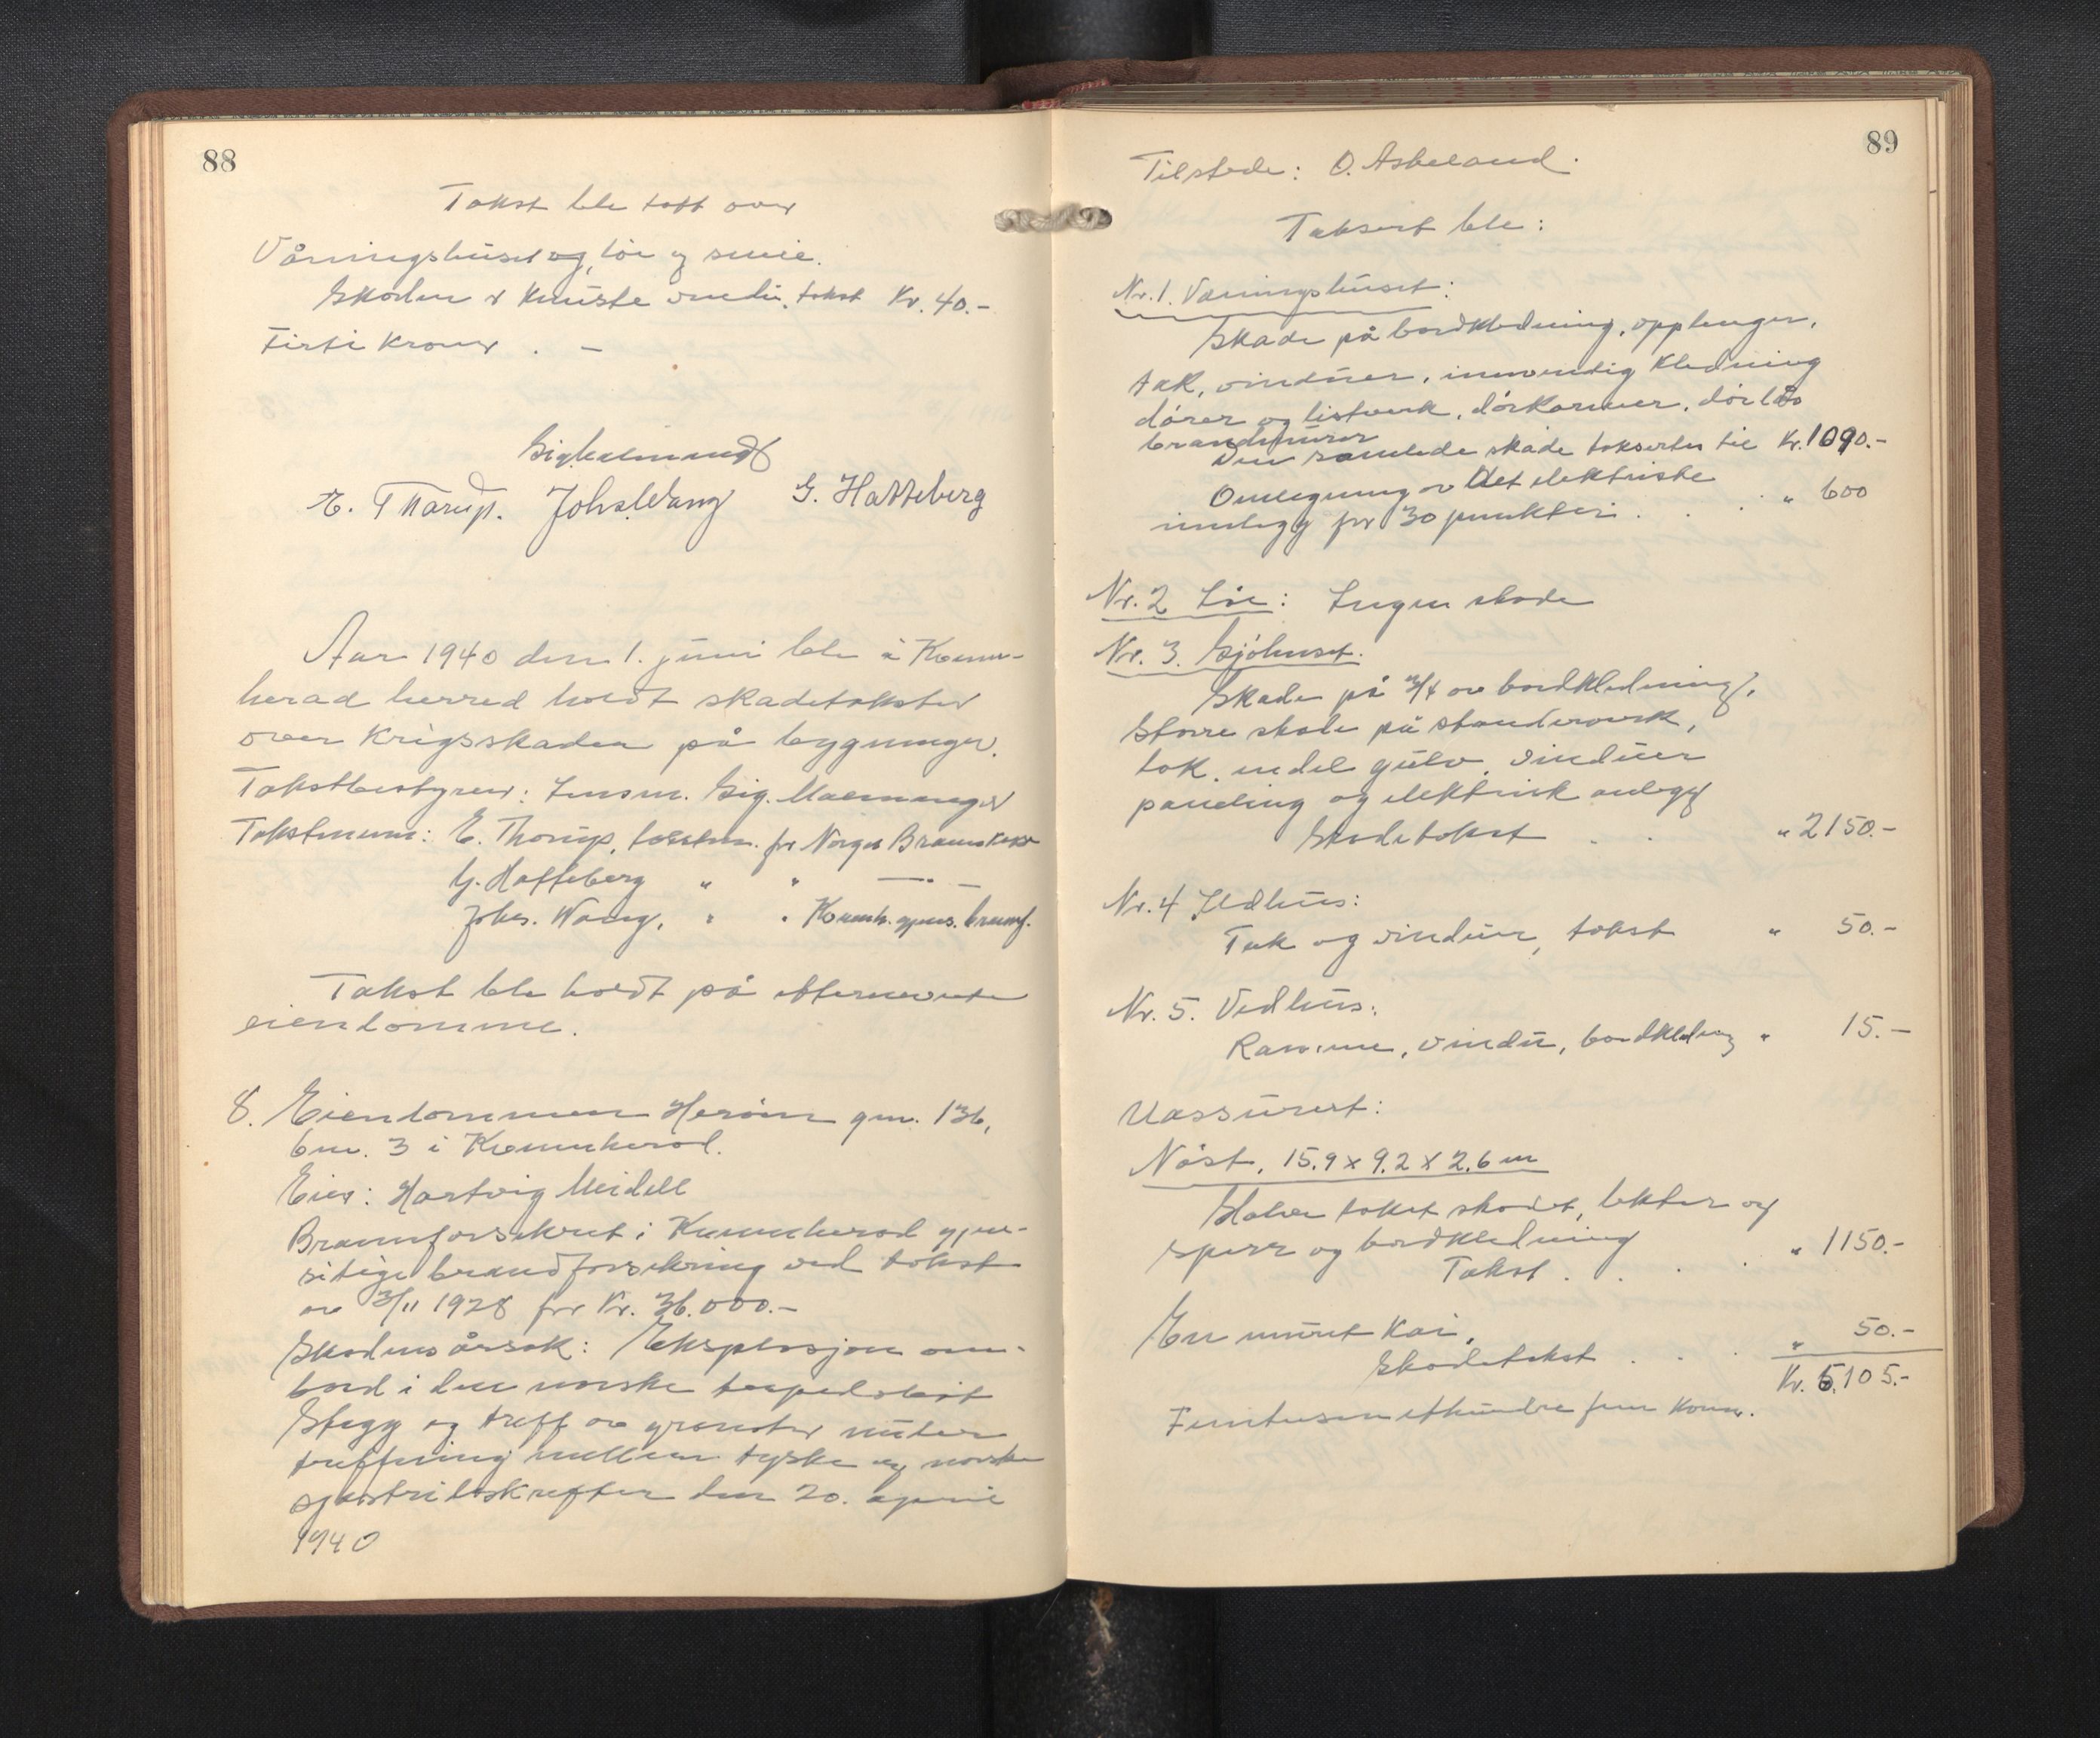 88
Takst ble tatt over
Våningshuset og, löe og smie.
Skaden er knuste vindu. takst Kr. 40.-
Firti kroner . —
Sig. Malmanger
E. Thorup. Johs. Wang G. Hatteberg
Aar 1940 den 1. juni ble i Kvinn-
herad herred holdt skadetakster
over krigsskader på bygninger.
Takstbestyrer: Lensm. Sig. Malmanger
Takstmenn: E. Thorup, takstm. for Norges Brannkasse
G. Hatteberg " " —"—
Johs. Wang, " " Kvinnh. gjens. brannf.
Takst ble holdt på efternevnte
eiendomme.
8. Eiendommen Herøen gnr. 136,
bnr. 3 i Kvinnherad.
Eier: Hartvig Meidell
Brannforsikret i Kvinnherad gjen-
sitige brandforsikring ved takst
av 3/11 1928 for Kr. 36.000.-
Skadens årsak: Eksplosjon om-
bord i den norske torpedobåt
Stegg og treff av granater under
treffning mellem tyske og norske
sjøstridskrefter den 20. april
1940
89
Tilstede: O. Askeland.
Taksert ble:
Nr. 1. Våningshuset:
Skade på bordkledning, opplenger,
tak, vinduer, innvendig kledning
dører og listverk, dörkarmer, dör lås
brandmurer
Den samlede skade taksertes til Kr. 1090.-
Omlegning av det elektriske
innlegg for 30 punkter . . . " 600
Nr. 2 Löe: Ingen skade
Nr. 3. Sjöhuset.
Skade på 3/4 av bordkledning,
större skade på standerverk,
tak. endel gulv, vinduer
paneling og elektrisk anlegg
Skadetakst . . " 2150.-
Nr. 4 Ildhus:
Tak og vinduer, takst " 50.-
Nr. 5. Vedhus:
Ramme, vindu, bordkledning " 15.-
Uassurert:
Nöst, 15.9 x 9.2 x 2.6 m
Halve taket skadet, lekter og
sperr og bordkledning
Takst . . . . " 1150.-
En muret kai,
Skadetakst . . . " 50.-
Kr. 5.105.-
Femtusenethundre fem kroner.